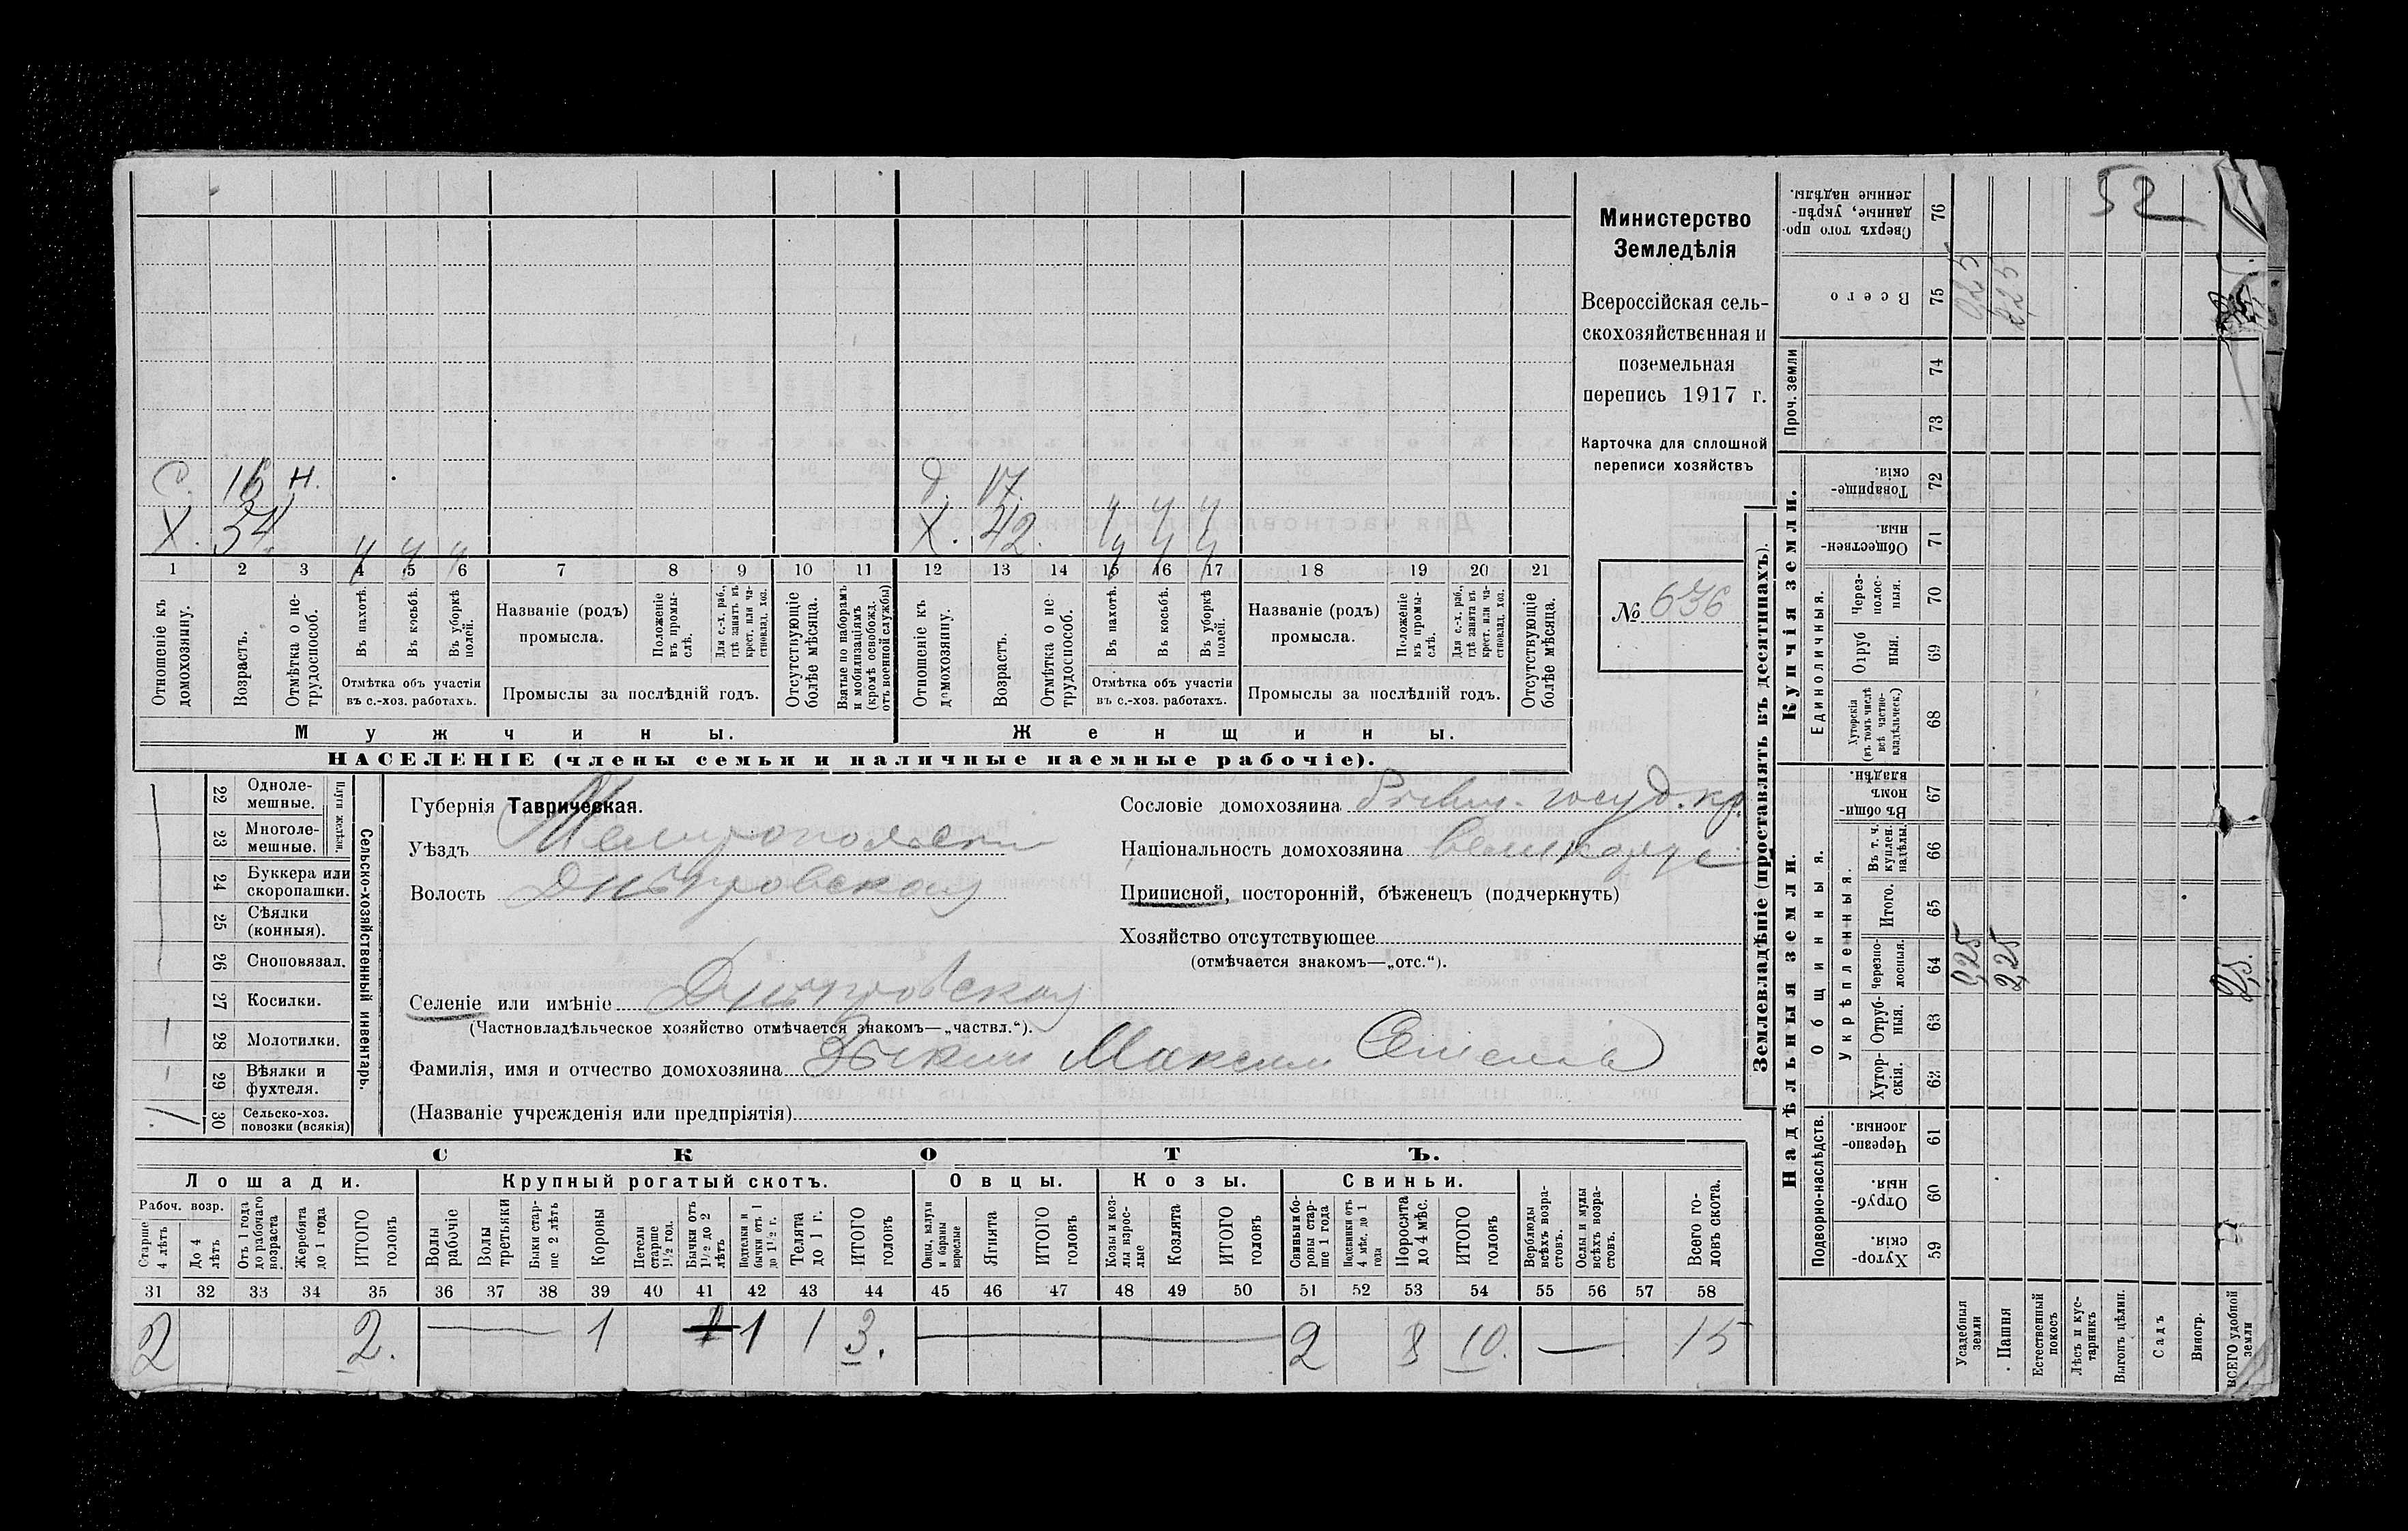 52
Министерство
Земледѣлія
Всероссійская сель-
скохозяйственная и
поземельная
перепись 1917 г.
Карточка для сплошной
переписи хозяйствъ
№ 636
С. 16 н.
Х. 54
Д. 17.
Х. 42.
1 2 3 4 5 6 7 8 9 10 11 12 13 14 15 16 17 18 19 20 21
Отношеніе къ домохозяину.
Возрастъ.
Отмѣтка о не-трудоспособ.
Въ пахотѣ.
Въ косьбѣ.
Въ уборкѣ полей.
Отмѣтка объ участіи
въ с.-хоз. работахъ.
Названіе (родъ)
промысла.
Положеніе въ промы-слѣ.
Для с.-х. раб., гдѣ занятъ въ крест. или ча-стновлад. хоз.
Промыслы за послѣдній годъ.
Отсутствующіе болѣе мѣсяца.
Взятые по наборамъ и мобилизаціямъ (кромѣ освобожд. отъ военной службы)
Отношеніе къ домохозяину.
Возрастъ.
Отмѣтка о не-трудоспособ.
Въ пахотѣ.
Въ косьбѣ.
Въ уборкѣ полей.
Отмѣтка объ участіи
въ с.-хоз. работахъ.
Названіе (родъ)
промысла.
Положеніе въ промы-слѣ.
Для с.-х. раб., гдѣ занята въ крест. или ча-стновлад. хоз.
Промыслы за послѣдній годъ.
Отсутствующіе болѣе мѣсяца.
Мужчины.
Женщины.
НАСЕЛЕНІЕ (члены семьи и наличные наемные рабочіе).
22 Одноле-мешные.
23 Многоле-мешные.
Плуги желѣзн.
24 Буккера или скоропашки.
25 Сѣялки (конныя).
26 Сноповязал.
27 Косилки.
28 Молотилки.
29 Вѣялки и фухтеля.
30 Сельско-хоз. повозки (всякія)
1
Сельско-хозяйственный инвентарь.
Губернія Таврическая.
Уѣздъ Мелитопольскій
Волость Днѣпровская
Селеніе или имѣніе Днѣпровская
(Частновладѣльческое хозяйство отмѣчается знакомъ—„частвл.“).
Фамилія, имя и отчество домохозяина Зыкин Максим Семенов
(Названіе учрежденія или предпріятія)
Сословіе домохозяина госуд. кр.
Національность домохозяина великорус
Приписной, посторонній, бѣженецъ (подчеркнуть)
Хозяйство отсутствующее
(отмѣчается знакомъ—„отс.“).
СКОТЪ.
Лошади.
Крупный рогатый скотъ.
Овцы.
Козы.
Свиньи.
Рабоч. возр.
Старше 4 лѣтъ
До 4 лѣтъ
Отъ 1 года до рабочаго возраста
Жеребята до 1 года
ИТОГО головъ
Волы рабочіе
Волы третьяки
Быки стар-ше 2 лѣтъ
Коровы
Нетели старше 1½ год.
Бычки отъ 1½ до 2 лѣтъ
Подтелки и бычки отъ 1 до 1½ г.
Телята до 1 г.
ИТОГО головъ
Овцы, валухи и бараны взрослые
Ягнята
ИТОГО головъ
Козы и коз-лы взрос-лые
Козлята
ИТОГО головъ
Свиньи и бо-ровы стар-ше 1 года
Подсвинки отъ 4 мѣс. до 1 года
Поросята до 4 мѣс.
ИТОГО головъ
Верблюды всѣхъ возра-стовъ.
Ослы и мулы всѣхъ возра-стовъ.
Всего го-ловъ скота.
31 32 33 34 35 36 37 38 39 40 41 42 43 44 45 46 47 48 49 50 51 52 53 54 55 56 57 58
2 2. 1 1 1 3. 2 8 10. 15
Землевладѣніе (проставлять въ десятинахъ).
Надѣльныя земли.
Купчія земли.
Проч. земли
Подворно-наслѣдств.
Общинныя.
Укрѣпленныя.
Единоличныя.
Хутор-скія. 59
Отруб-ныя. 60
Черезпо-лосныя. 61
Хутор-скія. 62
Отруб-ныя. 63
Черезпо-лосныя. 64
Итого. 65
Въ т. ч. куплен. надѣлы. 66
Въ общи-номъ владѣн. 67
Хуторскія (въ томъ числѣ всѣ частно-владѣльческ.) 68
Отруб ныя. 69
Через-полос-ныя. 70
Обществен-ныя. 71
Товарище-скія. 72
73
74
Всего 75
Сверхъ того про-данные, укрѣп-ленные надѣлы. 76
Усадебная земля 0,25 0,25
Пашня 2,25 2,25
Естественный покосъ
Лѣсъ и кус-тарникъ
Выгонъ цѣлин.
Садъ
Виногр.
ВСЕГО удобной земли